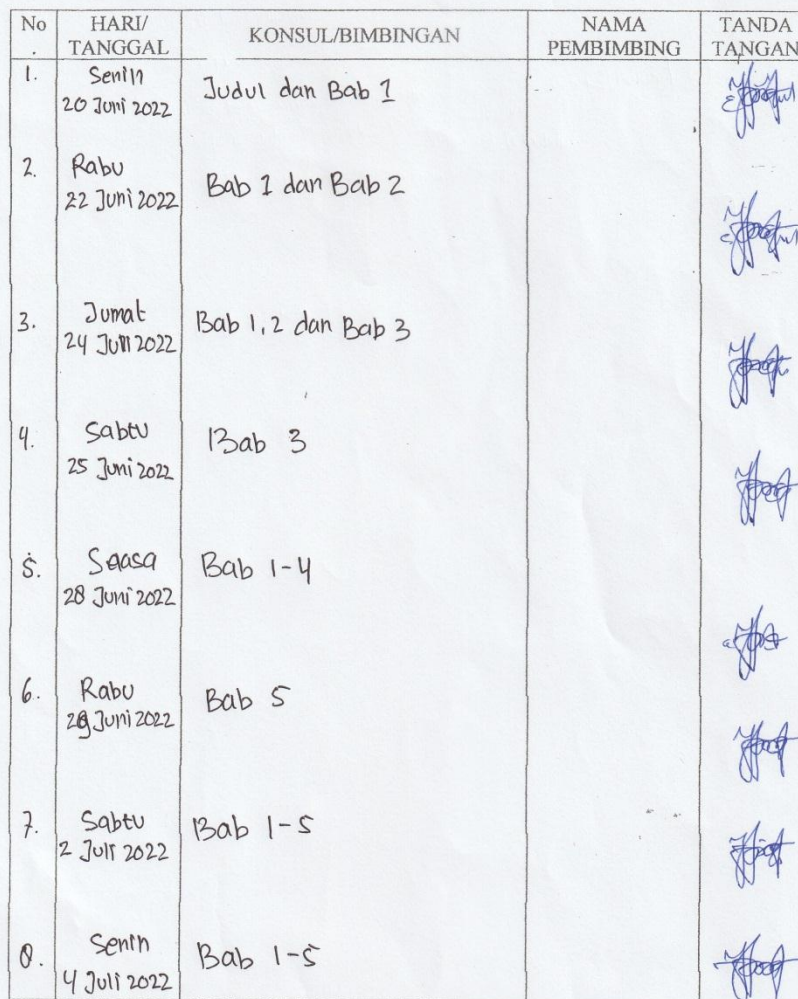 No
.
HARI/
TANGGAL
KONSUL/BIMBINGAN
NAMA
PEMBIMBING
TANDA
TANGAN
1.
Senin
20 Juni 2022
Judul dan Bab 1
2.
Rabu
22 Juni 2022
Bab 1 dan Bab 2
3.
Jumat
24 Juni 2022
Bab 1, 2 dan Bab 3
4.
Sabtu
25 Juni 2022
Bab 3
5.
28 Juni 2022
Bab 1-4
6.
Rabu
29 Juni 2022
Bab 5
7.
Sabtu
2 Juli 2022
Bab 1-5
8.
Senin
4 Juli 2022
Bab 1-5